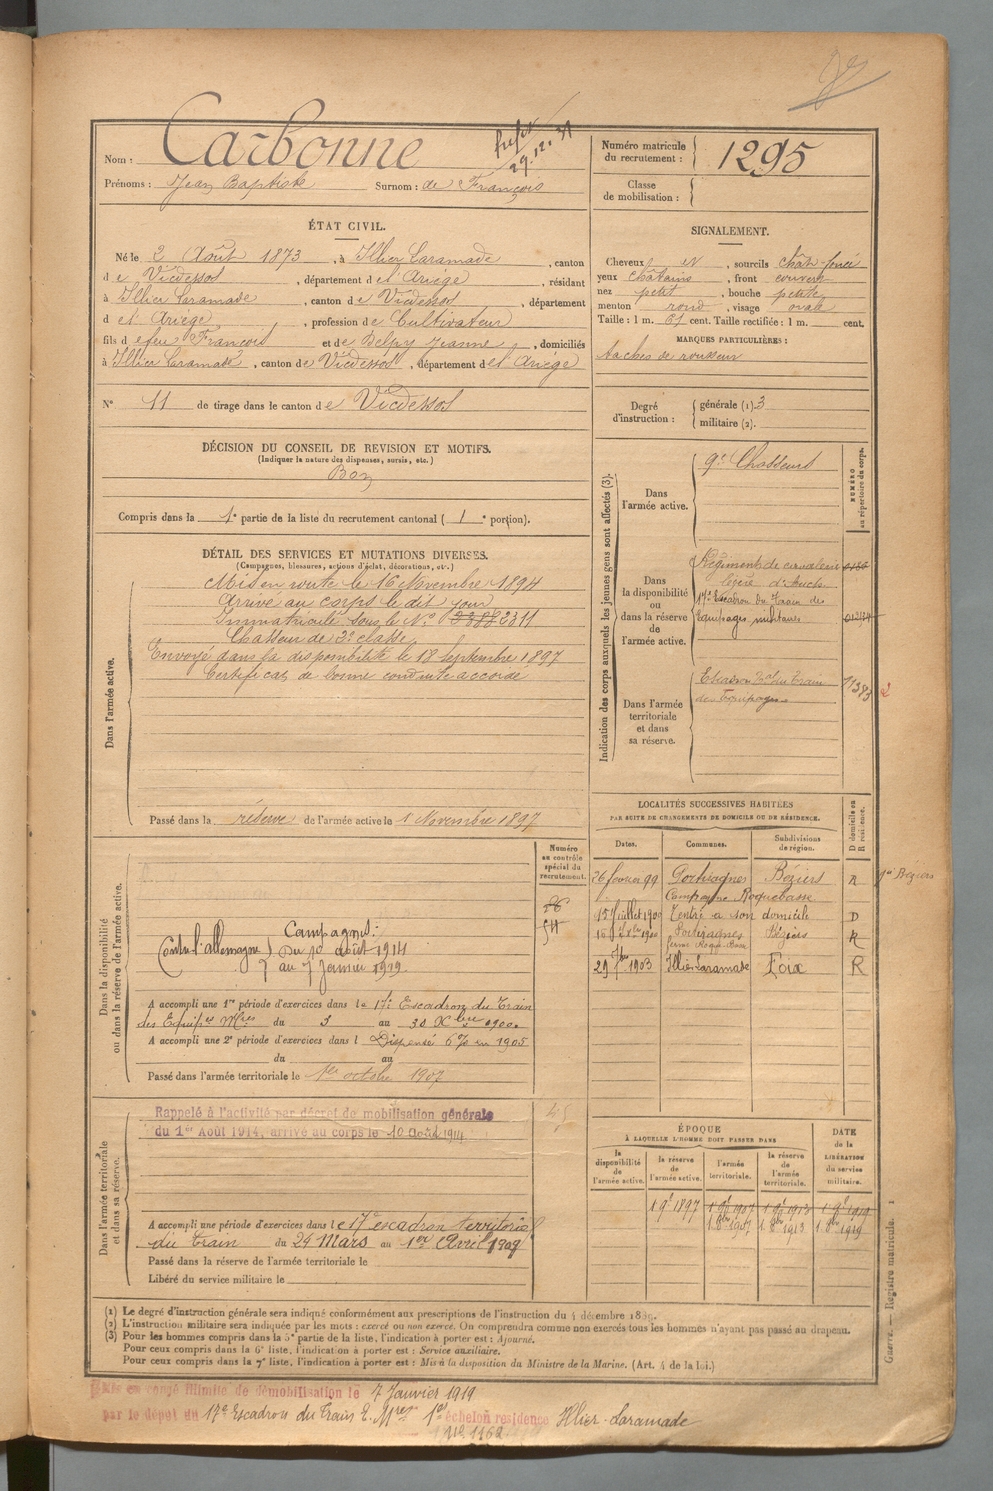 Nom : Carbonne
29.12.31
Prénoms : Jean Baptiste Surnom : de François
Numéro matricule du recrutement : 1295
Classe de mobilisation :
ÉTAT CIVIL.
Né le 2 Août 1873, à Illier Laramade, canton
de Vicdessos, département de l'Ariège, résidant
à Illier Laramade, canton de Vicdessos, département
de l'Ariège, profession de Cultivateur
fils de feu François et de Delpy Jeanne, domiciliés
à Illier Laramade, canton de Vicdessos, département de l'Ariège
N° 11 de tirage dans le canton de Vicdessos
SIGNALEMENT.
Cheveux et N, sourcils chât. foncé
yeux châtains, front couvert
nez petit, bouche petite
menton rond, visage ovale
Taille : 1 m. 61 cent. Taille rectifiée : 1 m. cent.
MARQUES PARTICULIÈRES :
taches de rousseur
Degré d'instruction : générale (1). 3
militaire (2).
DÉCISION DU CONSEIL DE REVISION ET MOTIFS.
(Indiquer la nature des dispenses, sursis, etc.)
Bon
Compris dans la 1e partie de la liste du recrutement cantonal ( 1e portion).
DÉTAIL DES SERVICES ET MUTATIONS DIVERSES.
(Campagnes, blessures, actions d'éclat, décorations, etc.)
Dans l'armée active.
Mis en route le 16 Novembre 1894
Arrivé au corps le dit jour
Immatriculé sous le N° 2311
Chasseur de 2e classe
Envoyé dans la disponibilité le 18 Septembre 1897
Certificat de bonne conduite accordé
Passé dans la réserve de l'armée active le 1 Novembre 1897
Indication des corps auxquels les jeunes gens sont affectés (3).
NUMÉRO au répertoire du corps.
Dans l'armée active.
9e Chasseurs
Dans la disponibilité ou dans la réserve de l'armée active.
Régiment de cavalerie
légère d'Auch
17e Escadron du Train des
Equipages militaires
Dans l'armée territoriale et dans sa réserve.
Escadron Tal du Train
des Equipages
LOCALITÉS SUCCESSIVES HABITÉES
PAR SUITE DE CHANGEMENTS DE DOMICILE OU DE RÉSIDENCE.
Dates. Communes. Subdivisions de région. D domicile ou R résidence.
26 février 99 Portiragnes Béziers R
Campagne Roquebasse
15 Juillet 1900 Rentré a son domicile D
Portiragnes Béziers R
29 1903 Illier-Laramade Foix R
Dans la disponibilité ou dans la réserve de l'armée active.
Numéro au contrôle spécial du recrutement.
Campagnes :
Contre l'allemagne Du 10 août 1914
au 7 Janvier 1919.
A accompli une 1re période d'exercices dans le 17e Escadron du Train
des Equipes Mres du 3 au 30 Xbre 1900.
A accompli une 2e période d'exercices dans l Dispensé 6% en 1905
du au
Passé dans l'armée territoriale le 1er octobre 1907
Dans l'armée territoriale et dans sa réserve.
Rappelé à l'activité par décret de mobilisation générale
du 1er Août 1914, arrivé au corps le 10 Août 1914
A accompli une période d'exercices dans le 17e escadron territorial
du Train du 24 Mars au 1er Avril 1909
Passé dans la réserve de l'armée territoriale le
Libéré du service militaire le
ÉPOQUE
À LAQUELLE L'HOMME DOIT PASSER DANS
la disponibilité de l'armée active.
la réserve de l'armée active.
l'armée territoriale.
la réserve de l'armée territoriale.
DATE de la LIBÉRATION du service militaire.
1 9e 1897 1 9e 1907 1 9e 1913 1 9e 1919
1 8bre 1907 1 8bre 1913 1 8bre 1919
(1) Le degré d'instruction générale sera indiqué conformément aux prescriptions de l'instruction du 4 décembre 1889.
(2) L'instruction militaire sera indiquée par les mots : exercé ou non exercé. On comprendra comme non exercés tous les hommes n'ayant pas passé au drapeau.
(3) Pour les hommes compris dans la 5e partie de la liste, l'indication à porter est : Ajourné.
Pour ceux compris dans la 6e liste, l'indication à porter est : Service auxiliaire.
Pour ceux compris dans la 7e liste, l'indication à porter est : Mis à la disposition du Ministre de la Marine. (Art. 4 de la loi.)
Guerre. — Registre matricule. 1
Mis en congé illimité de démobilisation le 7 Janvier 1919
par le dépôt du 17e Escadron du Train E. Mres 1er échelon résidence Illier-Laramade
N° 1162